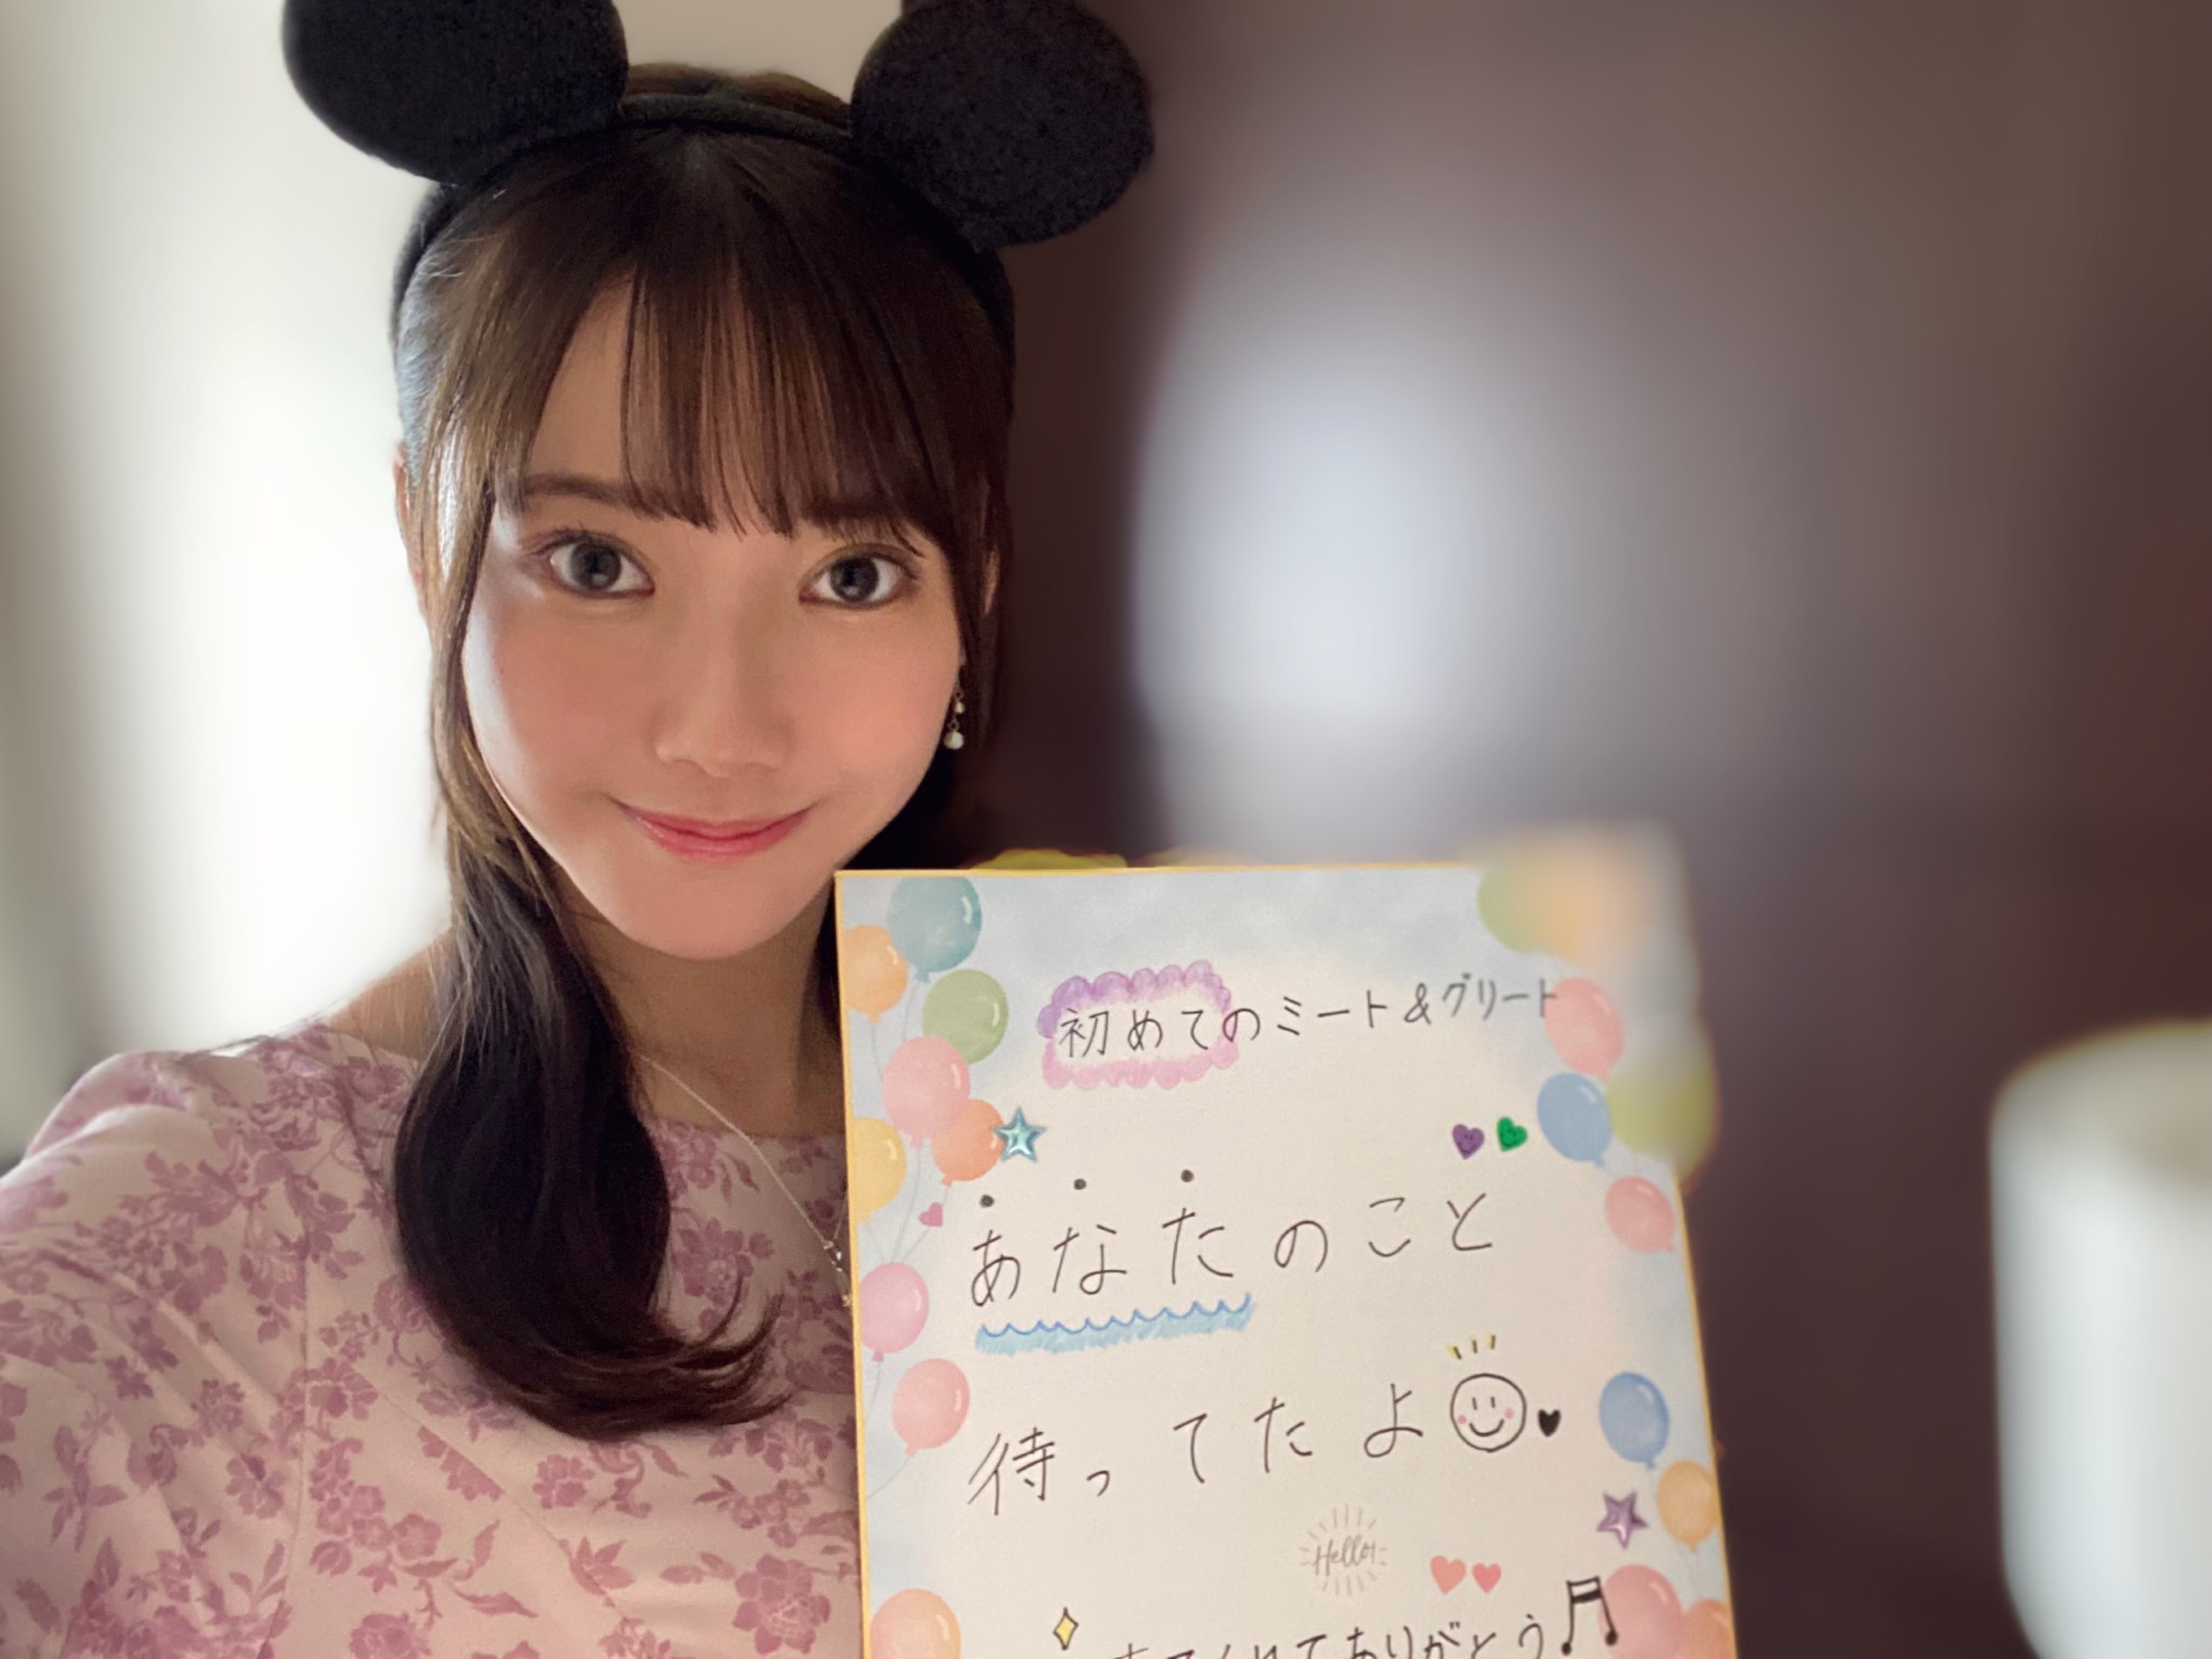 初めてのミート&グリート
あなたのこと
待ってたよ
Hello!
来てくれてありがとう